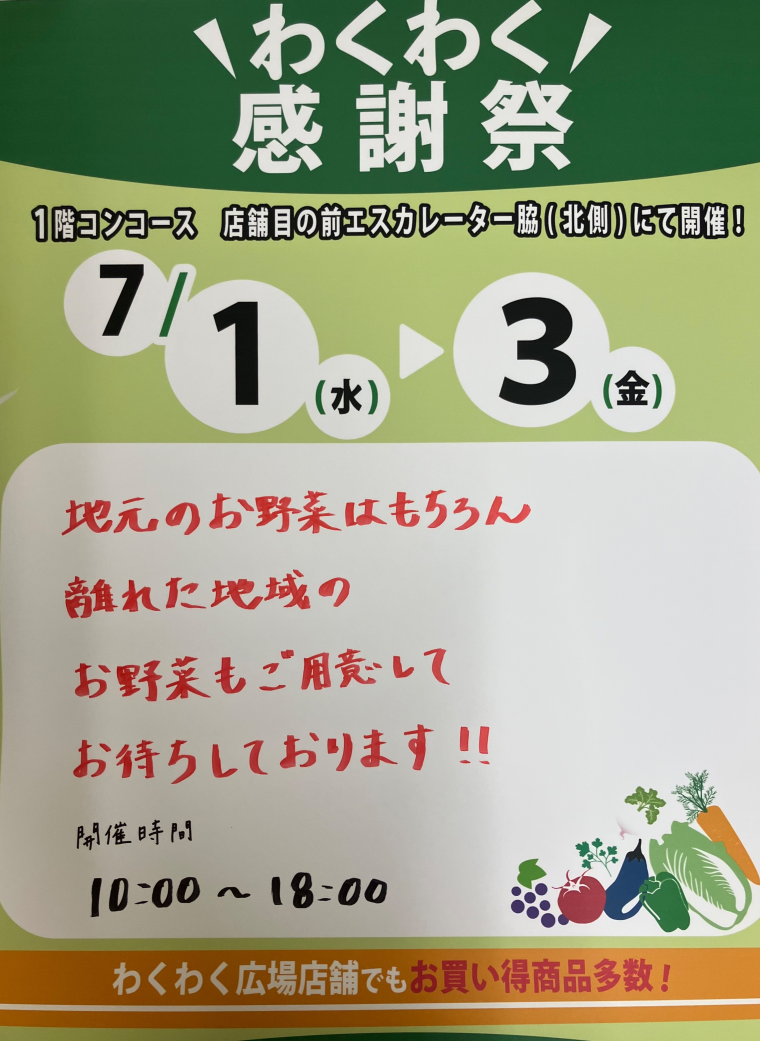 わくわく
感謝祭
1階コンコース 店舗目の前エスカレーター脇(北側)にて開催!
7/1(水)▶3(金)
地元のお野菜はもちろん
離れた地域の
お野菜もご用意して
お待ちしております!!
開催時間
10:00〜18:00
わくわく広場店舗でもお買い得商品多数!